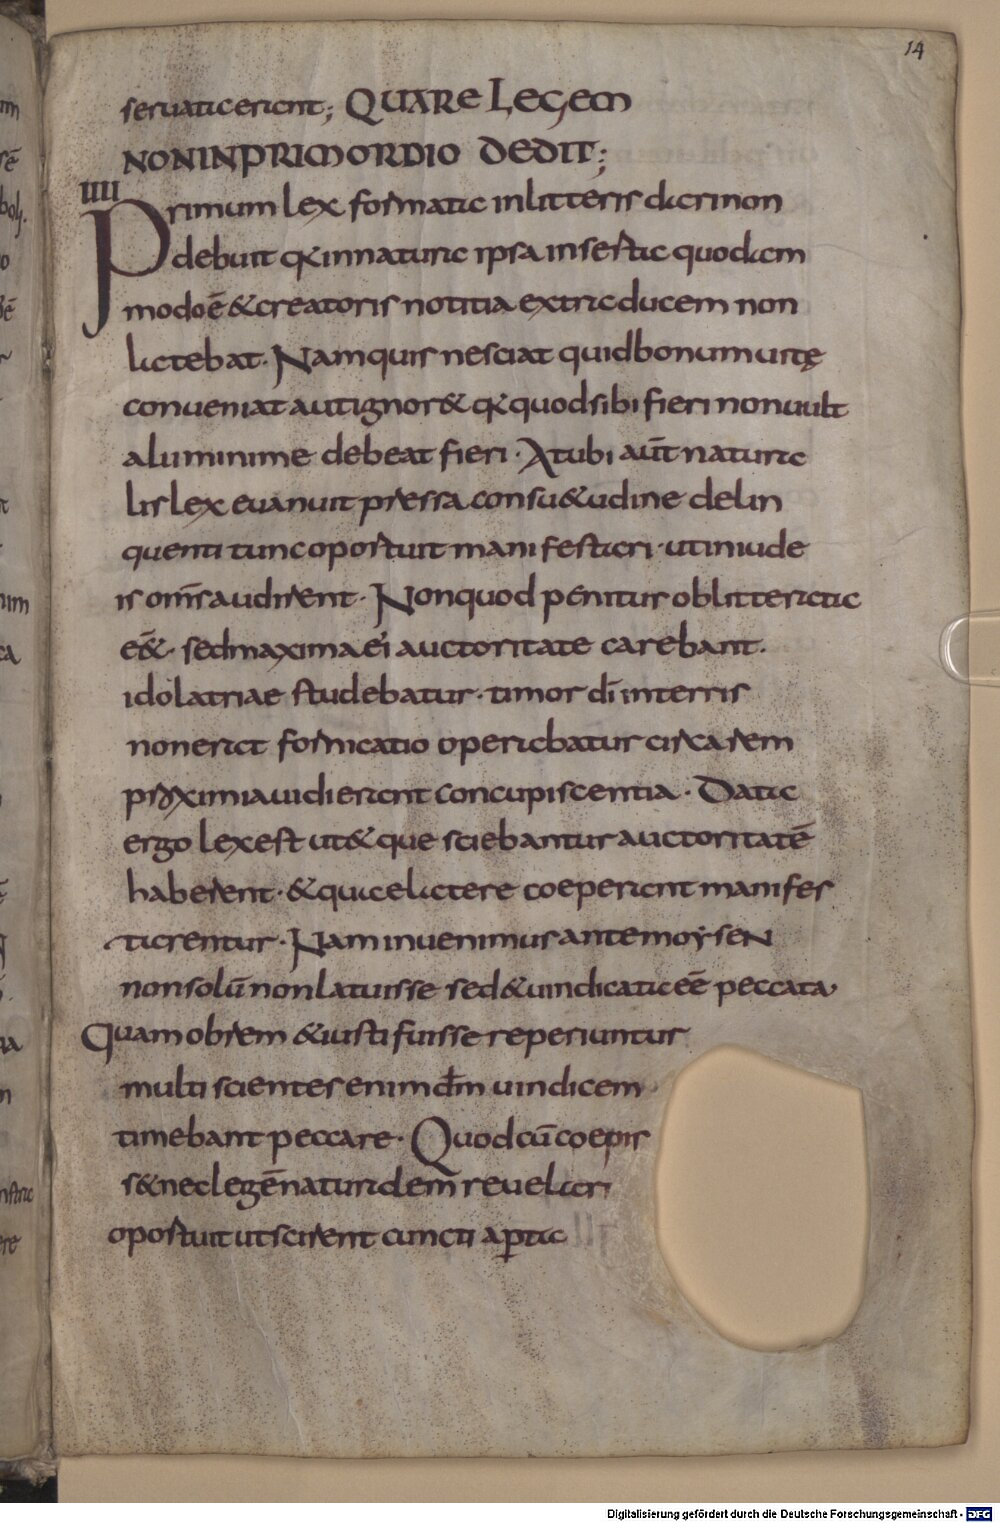 14
seruati erant; QUARE LEGEM
NON IN PRIMORDIO DEDIT;
IIII
Primum lex formata in litteris dari non
debuit q̄ in natura ipsa inserta quodam
modo ē & creatoris notitia ex traducem non
latebat. Nam quis nesciat quid bonum uitę
conueniat aut ignor& q̄ quod sibi fieri non uult
alii minime debeat fieri. At ubi aūt natura
lis lex euanuit pressa consu&udine delin
quenti tunc oportuit manifestari. ut in iude
is om̄s audirent. Non quod penitus oblitterata
e&̄. sed maxima ei auctoritate carebant.
idolatriae studebatur. timor dī in terris
non erat fornicatio operabatur circa rem
proximi auidi erant concupiscentia. Data
ergo lex est ut & que sciebantur auctoritatē
haberent. & qua latere coeperant manifes
tarentur. Nam inuenimus ante moysen
non solū non latuisse sed & uindicata eē peccata.
Quam ob rem & iusti fuisse reperiuntur
multi scientes enim dm̄ uindicem
timebant peccare. Quod cū coepis
s& neclegē naturā dem reuelari
oportuit ut scirent cuncti aperta
Digitalisierung gefördert durch die Deutsche Forschungsgemeinschaft - DFG